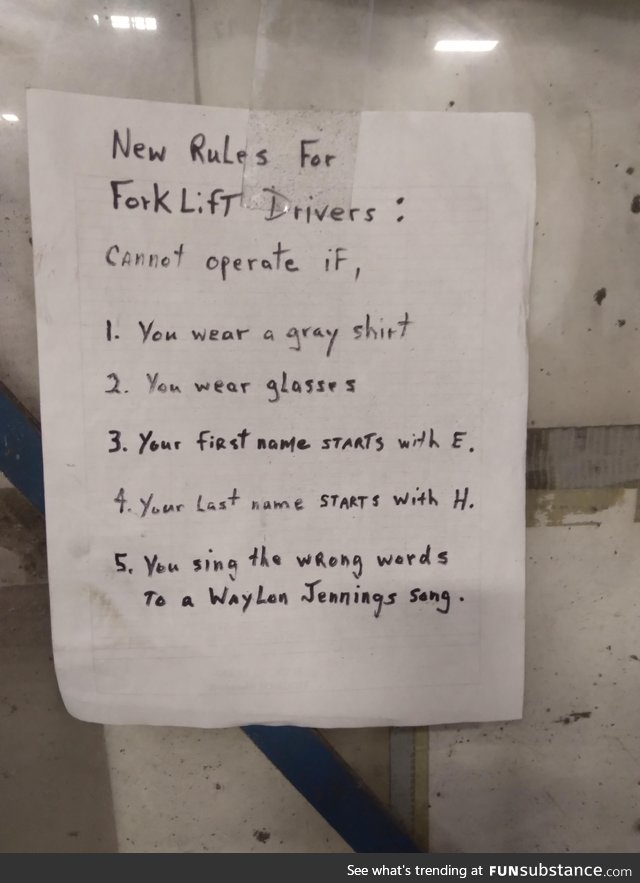 New Rules For
ForkLift Drivers:
Cannot operate if,
1. You wear a gray shirt
2. You wear glasses
3. Your first name STARTS with E.
4. Your Last name STARTS with H.
5. You sing the wrong words
To a Waylon Jennings song.
See what's trending at FUNsubstance.com